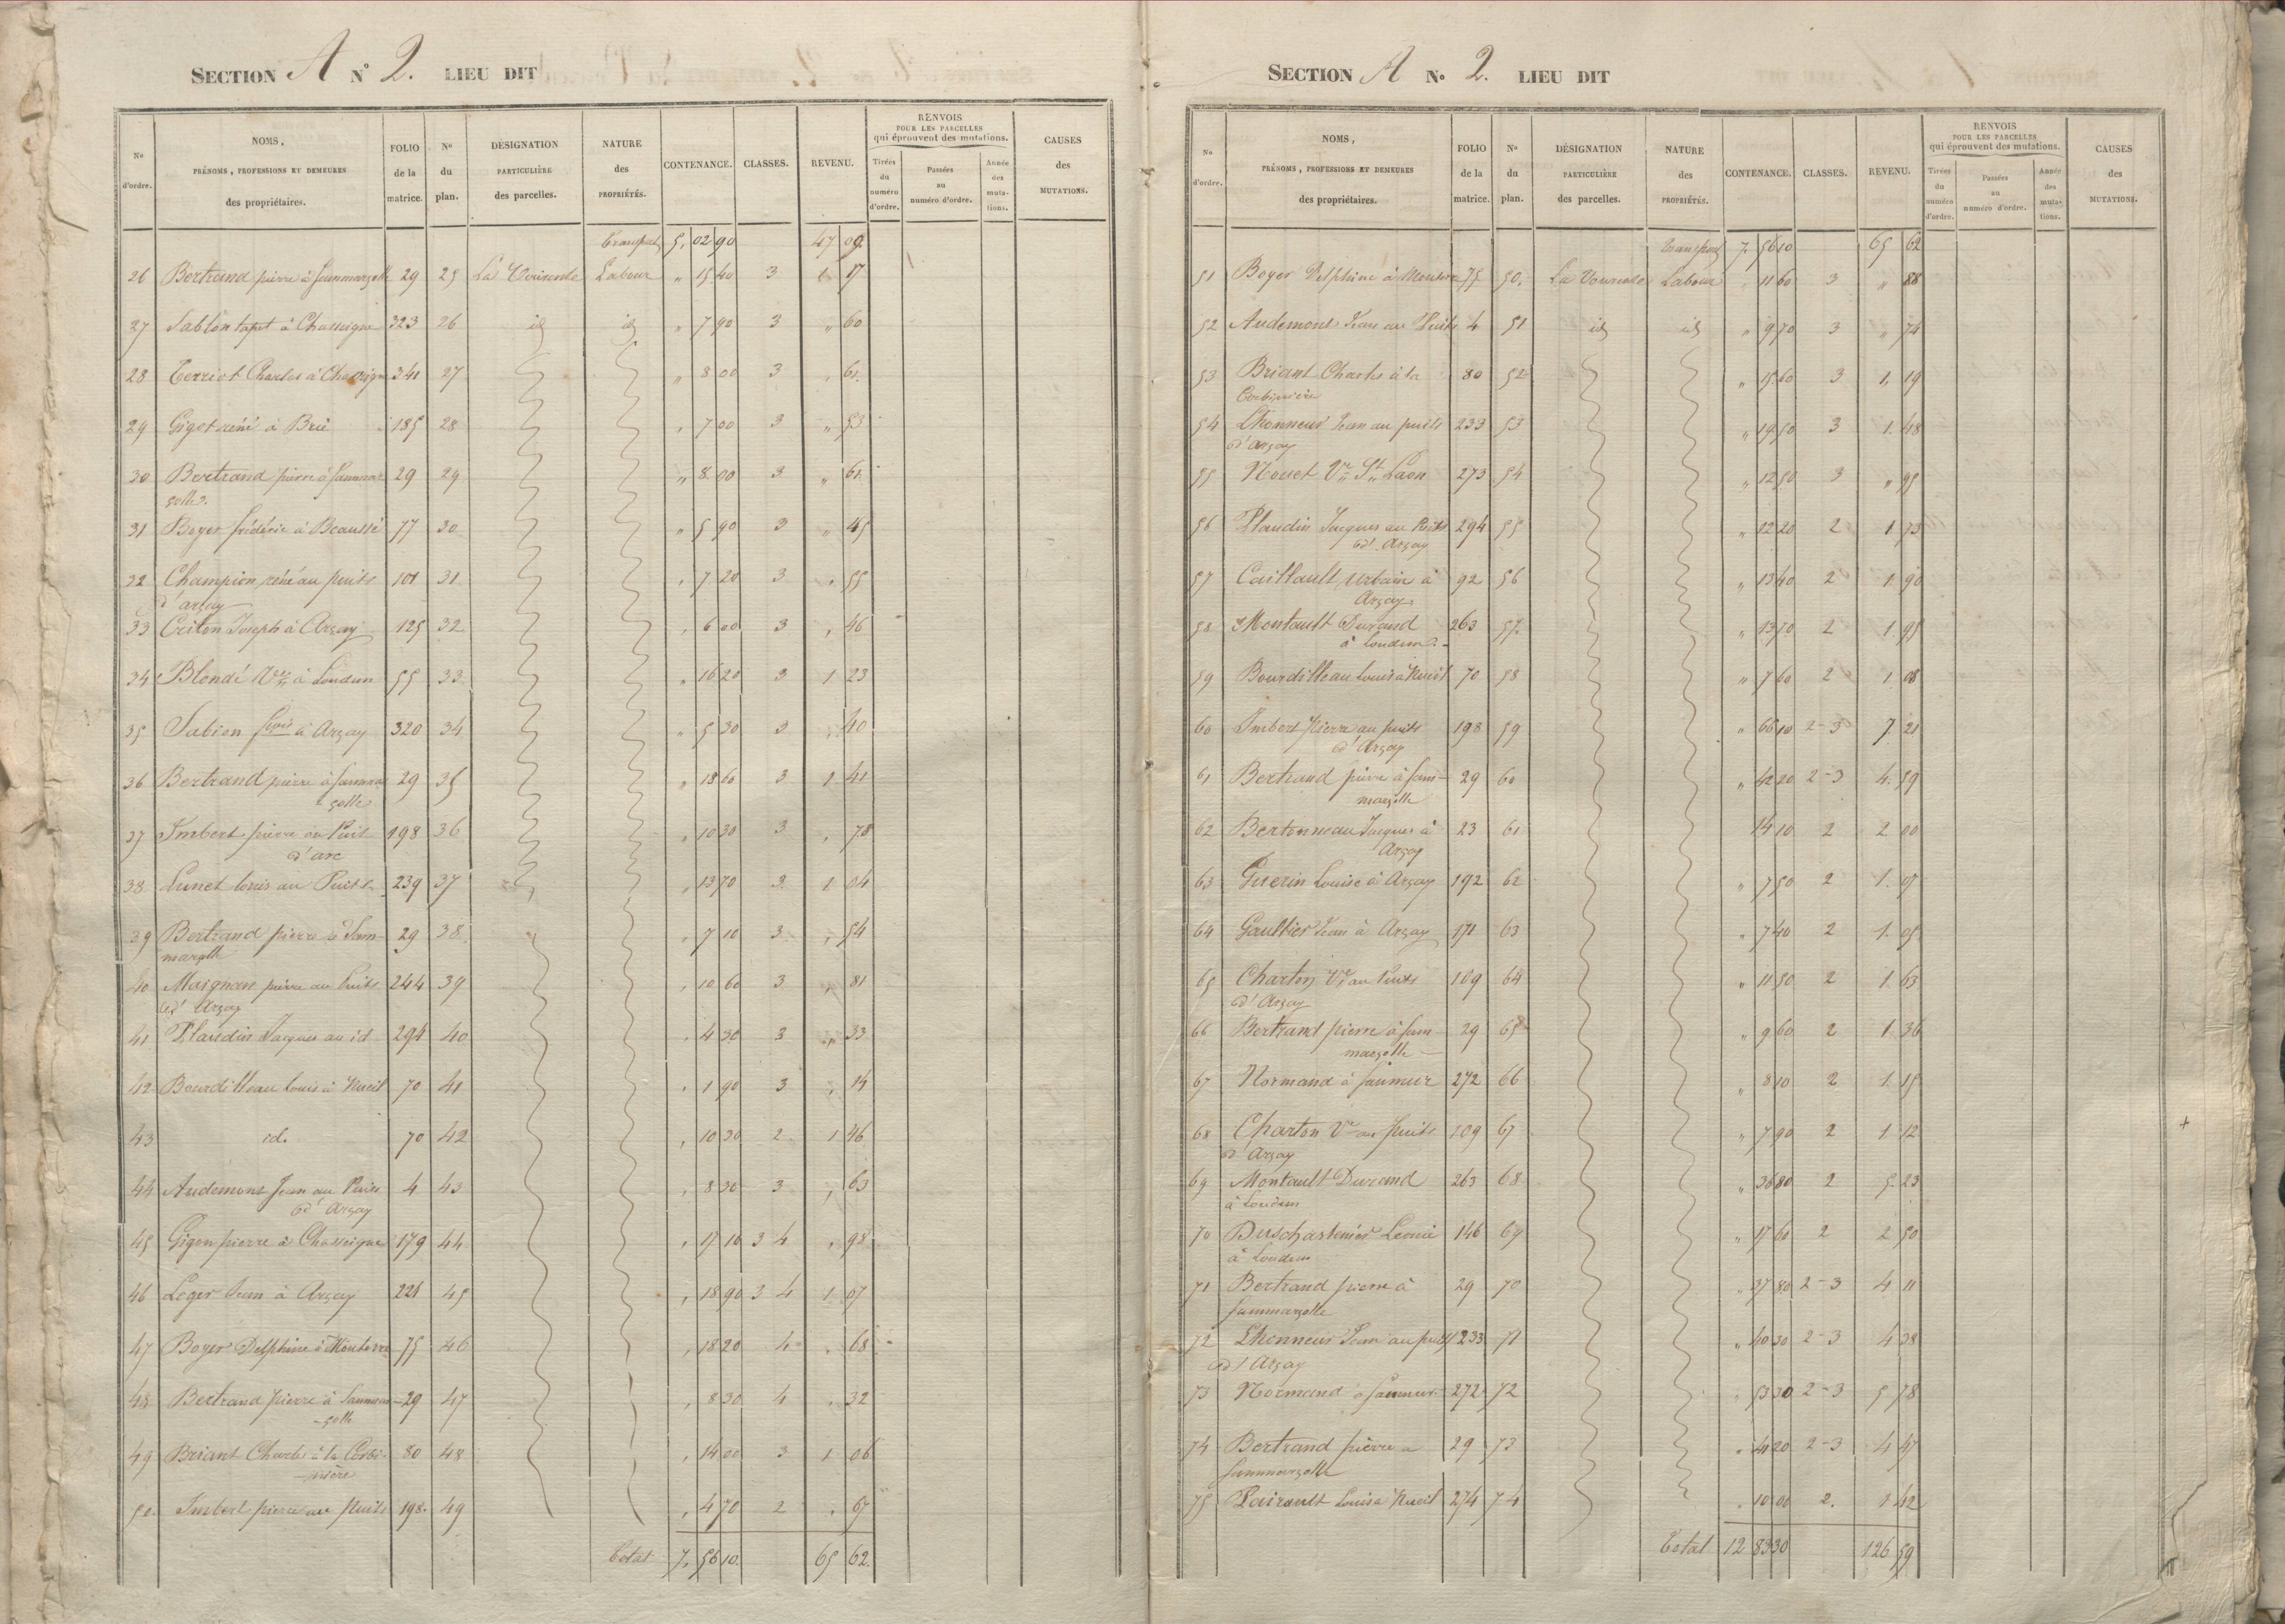 SECTION A N° 2. LIEU DIT
N° d'ordre. NOMS, PRÉNOMS, PROFESSIONS ET DEMEURES des propriétaires. FOLIO de la matrice. N° du plan. DÉSIGNATION PARTICULIÈRE des parcelles. NATURE des PROPRIÉTÉS. CONTENANCE. CLASSES. REVENU. RENVOIS POUR LES PARCELLES qui éprouvent des mutations. Tirées du numéro d'ordre. Passées au numéro d'ordre. Année des mutations. CAUSES des MUTATIONS.
Transport 5, 02 90 47 09
26 Bertrand pierre à 29 25 La Labour " 15 40 3 1 17
27 Sablon à Chasseigne 323 26 id id " 7 90 3 " 60
28 Terriot Charles à 341 27 " 8 00 3 " 61
29 Giget réné à Brie 185 28 " 7 00 3 " 53
30 Bertrand pierre à Sammar=
zolle. 29 29 " 8 00 3 " 61
31 Boyer frédéric à Beaussé 77 30 " 5 90 3 " 45
32 Champion réné au puits
d'arçay 101 31 " 7 20 3 " 55
33 Criton Joseph à Arçay 125 32 " 6 00 3 " 46
34 Blondé Vve à Loudun 55 33 " 16 20 3 1 23
35 Sabion à Arçay 320 34 " 5 30 3 " 40
36 Bertrand pierre à Sammar
zolle 29 35 " 18 60 3 1 41
37 Imbert pierre au Puit
d'arc 198 36 " 10 30 3 " 78
38 Lunet louis au Puits 239 37 " 13 70 3 1 04
39 Bertrand pierre à Sam-
marzolle 29 38 " 7 10 3 " 54
40 Maignan pierre au Puits
d'Arçay 244 39 " 10 60 3 " 81
41 Plaudin Jacques au id 294 40 " 4 30 3 " 33
42 Bourdilleau louis à Nueil 70 41 " 1 90 3 " 14
43 id. 70 42 " 10 30 2 1 46
44 Audemont Jean au Puits
d'Arçay 4 43 " 8 30 3 " 63
45 Gigon pierre à Chasseigne 179 44 " 17 10 3 4 " 98
46 Leger Jean à Arçay 221 45 " 18 90 3 4 1 07
47 Boyer Delphine à Mouterre 75 46 " 18 20 4 " 68
48 Bertrand pierre à Sammar
-zolle 29 47 " 8 30 4 " 32
49 Briant Charles à la Corbi-
-nière 80 48 " 14 00 3 1 06
50 Imbert pierre au Puits 198 49 " 4 70 2 " 67
Total 7, 56 10 65 62
SECTION A N° 2. LIEU DIT
N° d'ordre. NOMS, PRÉNOMS, PROFESSIONS ET DEMEURES des propriétaires. FOLIO de la matrice. N° du plan. DÉSIGNATION PARTICULIÈRE des parcelles. NATURE des PROPRIÉTÉS. CONTENANCE. CLASSES. REVENU. RENVOIS POUR LES PARCELLES qui éprouvent des mutations. Tirées du numéro d'ordre. Passées au numéro d'ordre. Année des mutations. CAUSES des MUTATIONS.
Transport 7, 56 10 65 62
51 Boyer Delphine à Mouterre 75 50 La Labour " 11 60 3 " 88
52 Audemont Jean au Puits 4 51 id id " 9 70 3 " 74
53 Briant Charles à la
Corbinière 80 52 " 15 60 3 1, 19
54 Lhonneur Jean au puits
d'Arçay 233 53 " 19 50 3 1. 48
55 Nouet Vve St Laon 273 54 " 12 50 3 " 95
56 Plaudin Jacques au Puits
d'Arçay 294 55 " 12 20 2 1 73
57 Caillault Urbain à
Arçay 92 56 " 13 40 2 1 90
58 Montault Durand
à Loudun 263 57 " 13 70 2 1. 95
59 Bourdilleau louis à Nueil 70 58 " 7 60 2 1 08
60 Imbert Pierre au puits
d'Arçay 198 59 " 66 10 2-3 7. 21
61 Bertrand pierre à Sam-
marzolle 29 60 " 42 20 2-3 4. 59
62 Bertonneau Jacques à
Arçay 23 61 14 10 2 2 00
63 Guerin Louise à Arçay 192 62 " 7 50 2 1. 07
64 Gaultier Jean à Arçay 171 63 " 7 40 2 1. 05
65 Charton Vve au Puits
d'Arçay 109 64 " 11 50 2 1. 63
66 Bertrand pierre à Sam-
marzolle 29 65 " 9 60 2 1. 36
67 Normand à Saumur 272 66 " 8 10 2 1. 15
68 Charton Vve au Puits
d'Arçay 109 67 " 7 90 2 1 12
69 Montault Durand
à Loudun 263 68 " 36 80 2 5. 23
70 Duschastenier
à Loudun 146 69 " 17 60 2 2 50
71 Bertrand pierre à
Sammarzolle 29 70 " 37 80 2-3 4 11
72 Lhonneur Jean au puits
d'Arçay 233 71 " 40 30 2-3 4 38
73 Normand à Saumur 272 72 " 53 30 2-3 5 78
74 Bertrand pierre à
Sammarzolle 29 73 " 41 20 2-3 4 47
75 Louis à Nueil 274 74 " 10 00 2. 1 42
Total 12 83 30 126 59